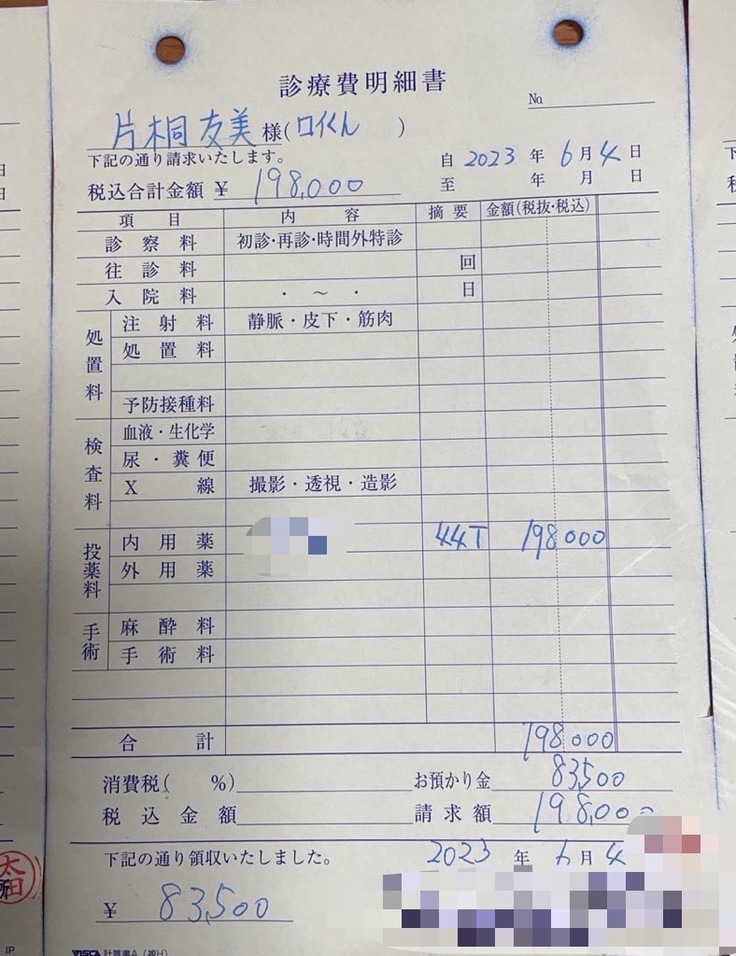 診療費明細書
No.
片桐友美 様(ロイくん )
下記の通り請求いたします。
自 2023 年 6 月 4 日
税込合計金額 ¥ 198,000
至 年 月 日
項目 内容 摘要 金額(税抜・税込)
診察料 初診・再診・時間外特診
往診料 回
入院料 ・ ~ ・ 日
処置料
注射料 静脈・皮下・筋肉
処置料
予防接種料
検査料
血液・生化学
尿・糞便
X線 撮影・透視・造影
投薬料
内用薬 44T 198000
外用薬
手術
麻酔料
手術料
合計 198000
消費税( %) お預かり金 83,500
税込金額 請求額 198,000
下記の通り領収いたしました。 2023 年 6 月 4
¥ 83,500
VISCA 計算書A(複H)
IP
日
日
太田